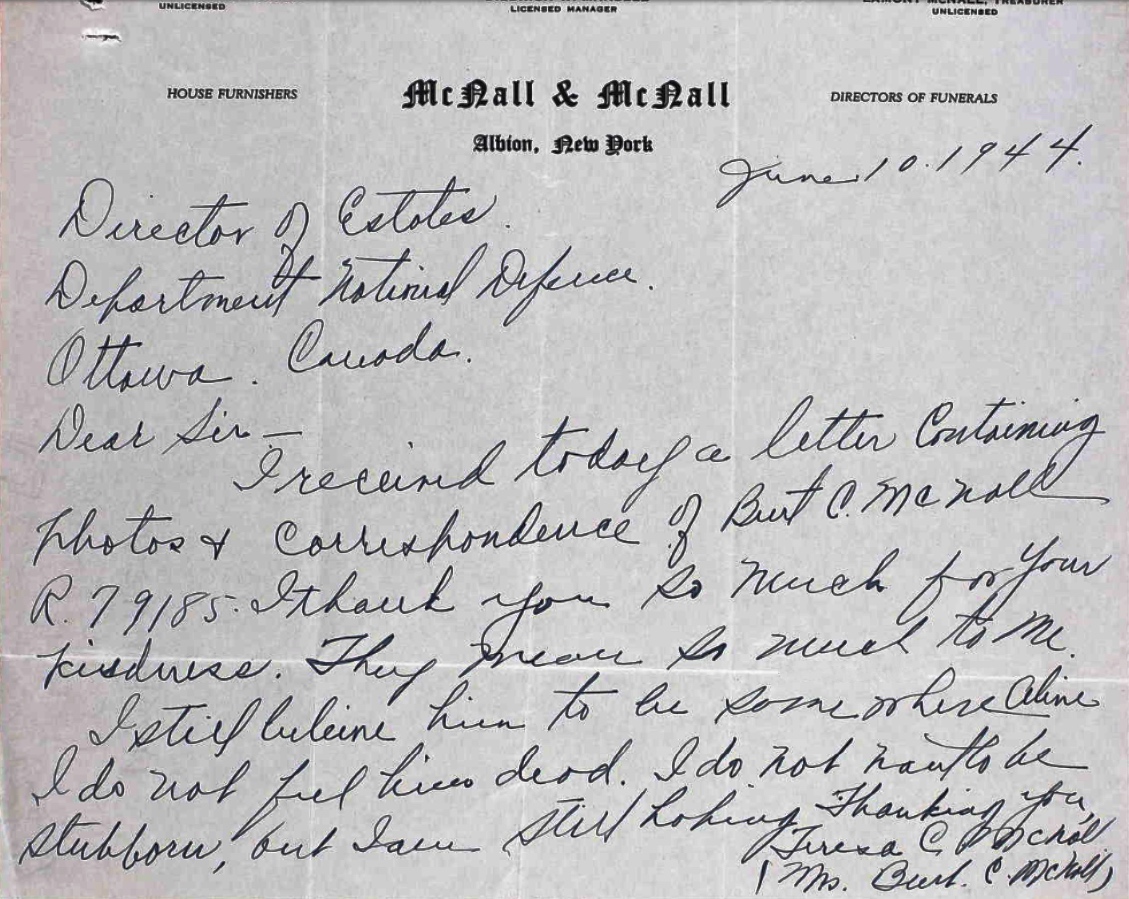 UNLICENSED
LICENSED MANAGER
LAMONT MCNALL, TREASURER
UNLICENSED
HOUSE FURNISHERS
McNall & McNall
DIRECTORS OF FUNERALS
Albion, New York
June 10. 1944.
Director of Estates.
Department National Defence.
Ottawa. Canada.
Dear Sir —
I received today a letter Containing
photos & Correspondence of Burt C. McNall
R. 79185. I thank you so much for your
kindness. They mean so much to me.
I still believe him to be somewhere alive
I do not feel hes dead. I do not want to be
stubborn, but I am still hoping Thanking you,
Teresa C. McNall
(Mrs. Burt. C. McNall)